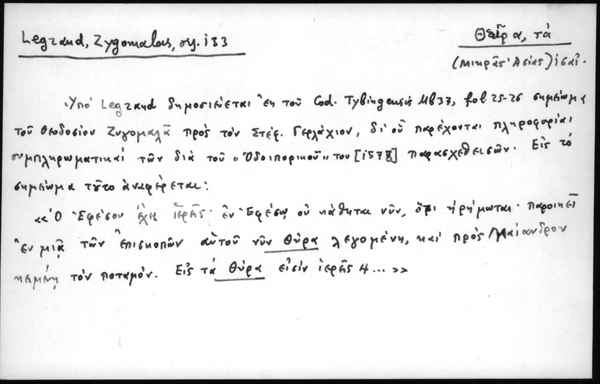 Legrand, Zygomalas, σ. 133
Θεῖρα, τά
(Μικρᾶς Ἀσίας)
Ὑπό Legrand δημοσιεύεται ἐκ τοῦ Cod. Tybingensis Mb 37, fol. 25-26 σημείωμα
τοῦ Θεοδοσίου Ζυγομαλᾶ πρὸς τὸν Στέφ. Γερλάχιον, δι' οὗ παρέχονται πληροφορίαι
συμπληρωματικαί τῶν διά τοῦ «Ὁδοιπορικοῦ» του [1578] παρασχεθεισῶν. Εἰς τό
σημείωμα τοῦτο ἀναφέρεται:
«Ὁ Ἐφέσου ἔχει ἱερεῖς· ἐν Ἐφέσῳ οὐ κάθηται νῦν, ὅτι ἠρήμωται· παροικεῖ
ἐν μιᾷ τῶν ἐπισκοπῶν αὐτοῦ νῦν Θύρα λεγομένη, καί πρός Μαίανδρον
κειμένη τόν ποταμόν. Εἰς τά Θύρα εἰσίν ἱερεῖς 4... »